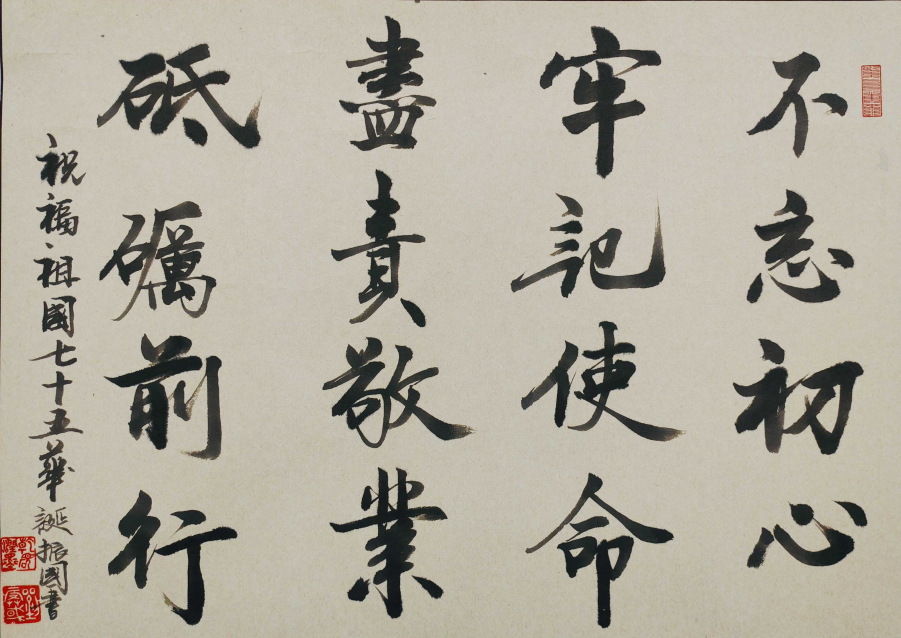 不忘初心
牢記使命
盡責敬業
砥礪前行
祝福祖國七十五華誕振國書